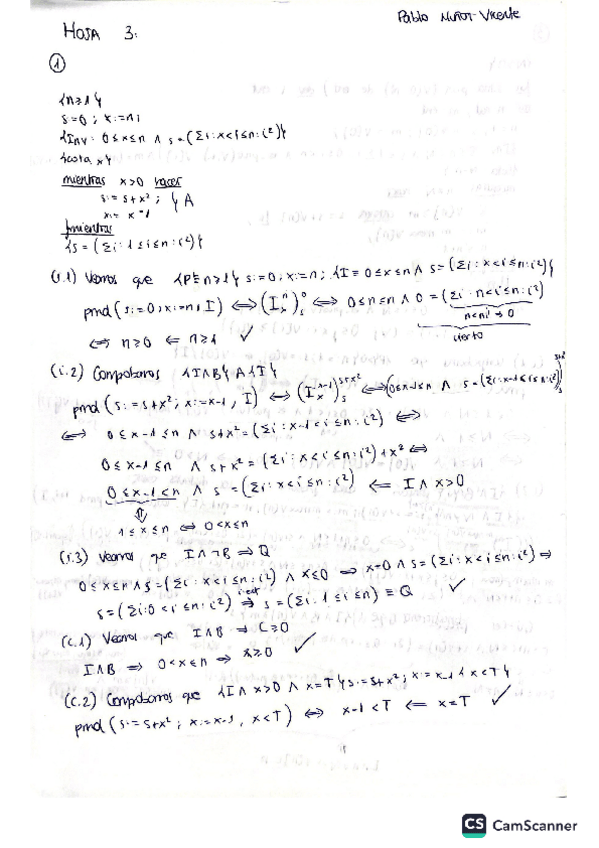 Pablo Muñoz Vicente
HOJA 3:
①
{n≥1}
s:=0; x:=n;
{Inv: 0≤x≤n ∧ s=(Σi: x<i≤n: i²)}
{cota x}
mientras x>0 hacer
s:= s+x²; } A
x:= x-1
fmientras
{s=(Σi: 1≤i≤n: i²)}
(i.1) Veamos que {P≡n≥1} s:=0; x:=n; {I≡0≤x≤n ∧ s=(Σi: x<i≤n: i²)}
pmd(s:=0; x:=n, I) ⟺ (I_x^n)_s^0 ⟺ 0≤n≤n ∧ 0=(Σi: n<i≤n: i²)
n<n! → 0
cierto
⟺ n≥0 ⟸ n≥1 ✓
(i.2) Comprobamos {I∧B} A {I}
pmd(s:=s+x²; x:=x-1, I) ⟺ (I_x^{x-1})_s^{s+x²} ⟺ (0≤x-1≤n ∧ s=(Σi: x-1<i≤n: i²))_s^{s+x²}
⟺ 0≤x-1≤n ∧ s+x²=(Σi: x-1<i≤n: i²) ⟺
0≤x-1≤n ∧ s+x²=(Σi: x<i≤n: i²)+x² ⟺
0≤x-1<n ∧ s=(Σi: x<i≤n: i²) ⟸ I∧x>0
⇕
1≤x≤n ⟺ 0<x≤n
(i.3) Veamos que I∧¬B ⟹ Q
0≤x≤n ∧ s=(Σi: x<i≤n: i²) ∧ x≤0 ⟹ x=0 ∧ s=(Σi: x<i≤n: i²) ⟹
s=(Σi: 0<i≤n: i²) ⟹ s=(Σi: 1≤i≤n) ≡ Q ✓
(c.1) Veamos que I∧B ⟹ C≥0
I∧B ⟹ 0<x≤n ⟹ x≥0 ✓
(c.2) Comprobamos que {I∧x>0 ∧ x=T} s:=s+x²; x:=x-1 {x<T}
pmd(s:=s+x²; x:=x-1, x<T) ⟺ x-1<T ⟸ x=T ✓
CS CamScanner